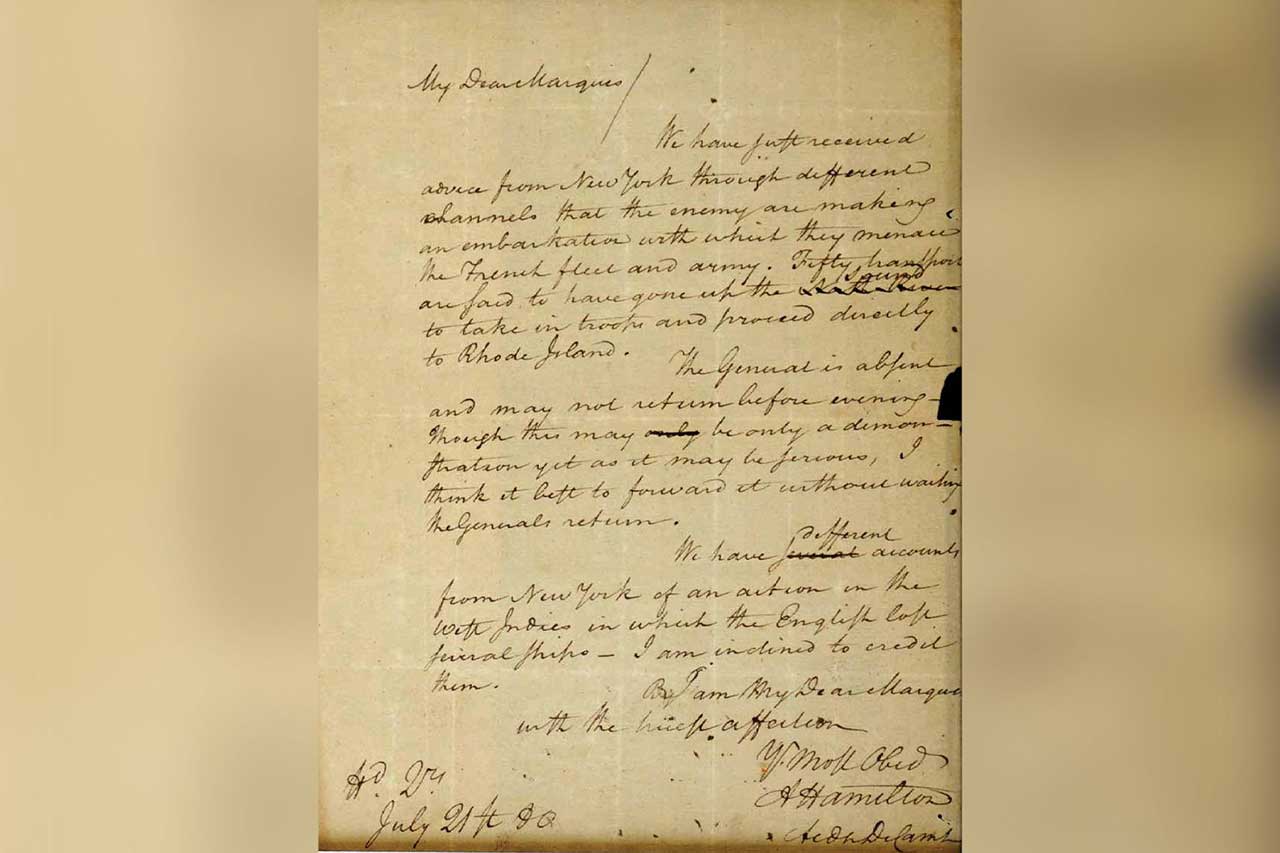 My Dear Marquis /
We have just received
advice from New York through different
channels that the enemy are making
an embarkation with which they menace
the French fleet and army. Fifty transports
Sound
are said to have gone up the North River
to take in troops and proceed directly
to Rhode Island.
The General is absent
and may not return before evening –
Though this may only be only a demon–
stration yet as it may be serious, I
think it best to forward it without waiting
the Generals return.
different
We have several accounts
from New York of an action in the
West Indies in which the English lost
several ships – I am inclined to credit
them.
I am My Dear Marquis
with the truest affection
Yr. Most Obed
A Hamilton
Aide De Camp
Hd. Qrs
July 21st 80